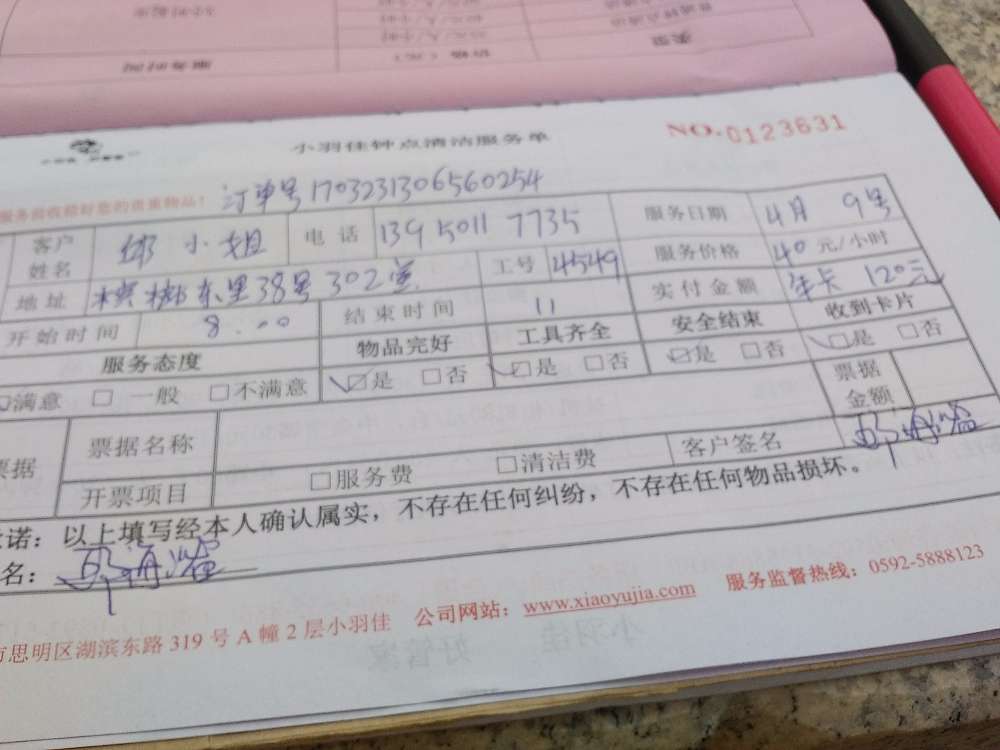 服务时间
价格(元)
类型
小羽佳钟点清洁服务单
NO.0123631
订单号1703231306560254
客户姓名 邱小姐 电话 13950117735 服务日期 4月9号
地址 槟榔东里38号302室 工号 4549 服务价格 40元/小时
开始时间 8:00 结束时间 11 实付金额 年卡 120元
服务态度 物品完好 工具齐全 安全结束 收到卡片
☑满意 □一般 □不满意 ☑是 □否 ☑是 □否 ☑是 □否 ☑是 □否
票据 票据名称 票据金额
开票项目 □服务费 □清洁费 客户签名
诺：以上填写经本人确认属实，不存在任何纠纷，不存在任何物品损坏。
名：
市思明区湖滨东路 319 号 A 幢 2 层小羽佳 公司网站：www.xiaoyujia.com 服务监督热线：0592-5888123